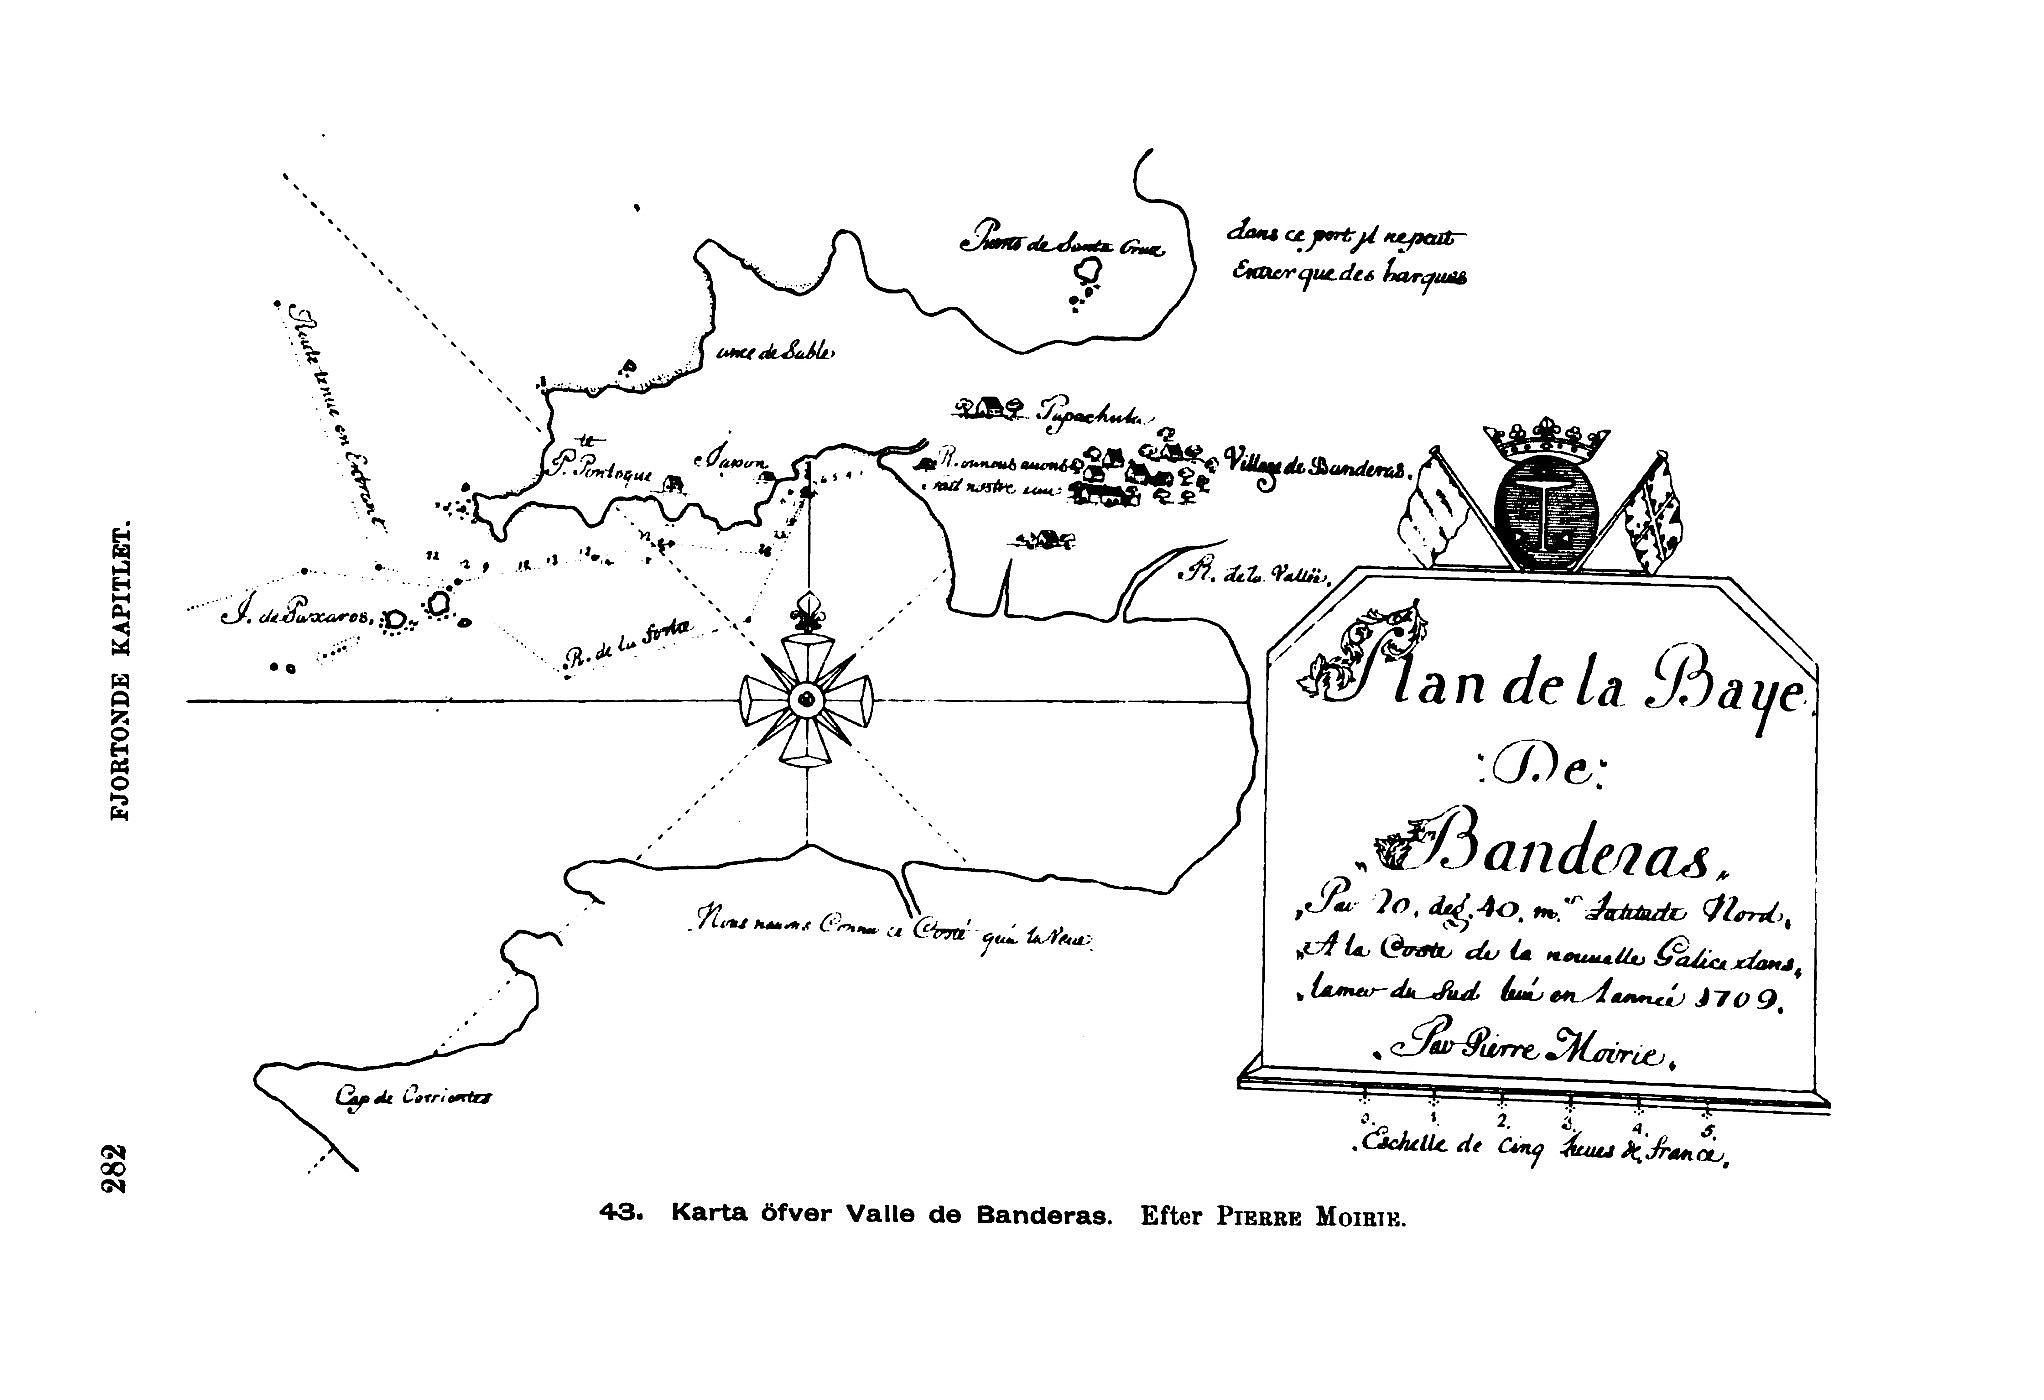 FJORTONDE KAPITLET.
282
dans ce port jl ne peut
Entrer que des barques
Punto de Santa Cruz
ance de Sable
Route tenue en Entrant
Papachula
P.te Pontoque
Village de Banderas.
R. ou nous auons
nostre eau
R. de la Vallée.
J. de Paxaros.
R. de la sortie
Nous nauons Connu ce Costé qu'a la Veue.
Cap de Corrientes
Plan de la Baye
: De :
„Banderas„
Par 20. deg. 40. m.es Latitude Nord.
A la Coste de la nouuelle Galice dans
la mer du Sud en Lanneé 1709.
Par Pierre Moirie.
0. 1. 2. 3. 4. 5.
Eschelle de Cinq lieues de france.
43. Karta öfver Valle de Banderas. Efter PIERRE MOIRIE.